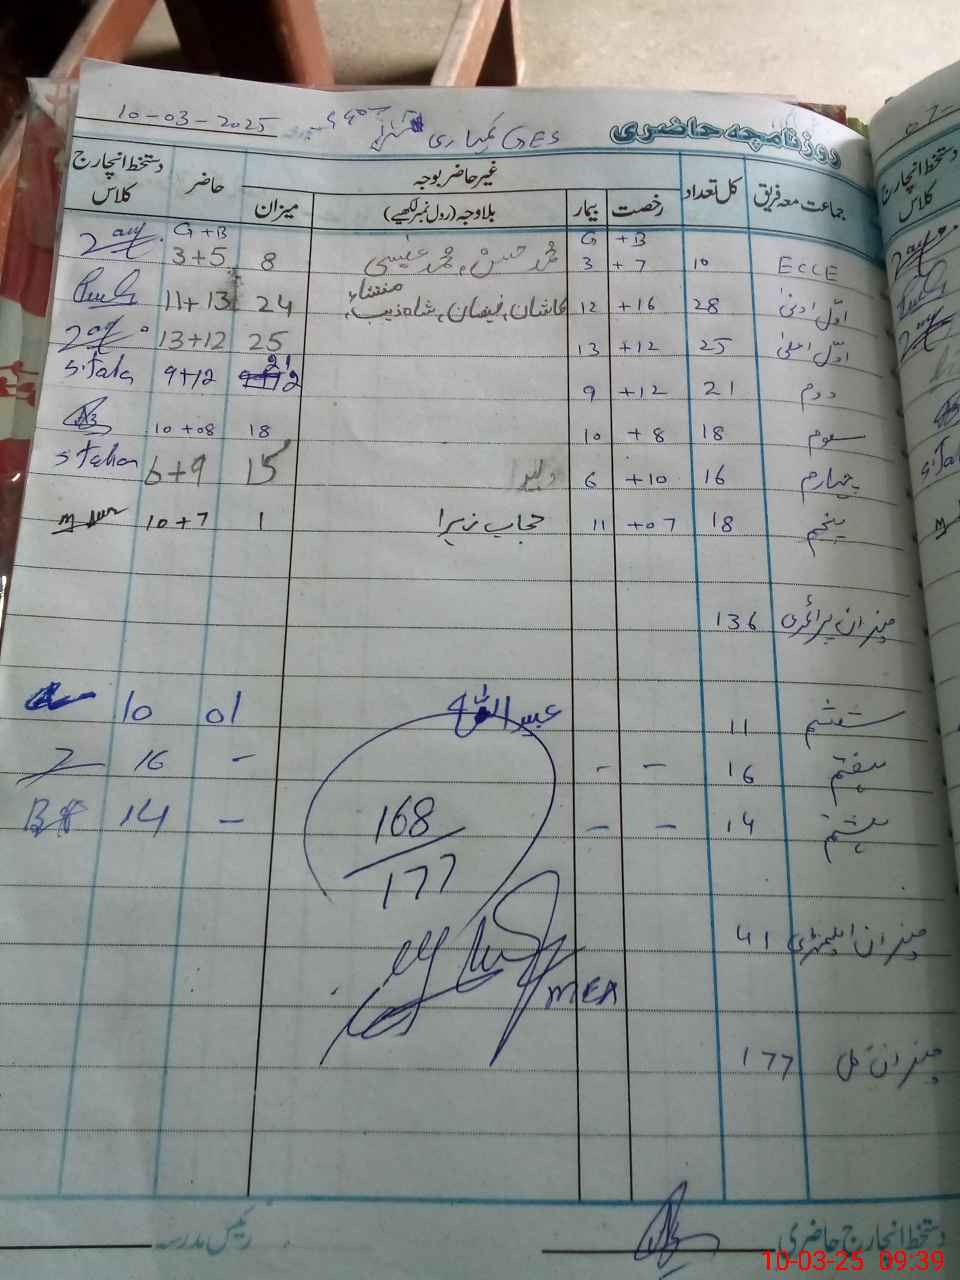 روزنامچہ حاضری GES 10-03-2025
جماعت معہ فریق کل تعداد غیر حاضر بوجہ حاضر دستخط انچارج کلاس
رخصت بیمار بلاوجہ (رول نمبر لکھیے) میزان
G + B G + B
ECCE 10 3 + 7 محمد حسن، محمد عیسیٰ 8 3+5
اول ادنیٰ 28 12 +16 کاشان، فیضان، شاہ زیب، منشاء 24 11+13
اول اعلیٰ 25 13 +12 25 13+12
دوم 21 9 +12 21 9+12 S.Tala
سوم 18 10 +8 18 10+08
چہارم 16 6 +10 15 6+9
پنجم 18 11 +07 حجاب زہرا 1 10+7
میزان پرائمری 136
ششم 11 عبد اللہ 01 10
ہفتم 16 - - - 16
ہشتم 14 - - - 14
168
177
میزان ایلیمنٹری 41
MEA
میزان کل 177
دستخط انچارج حاضری رئیس مدرسہ
10-03-25 09:39
07-
دستخط انچارج
کلاس